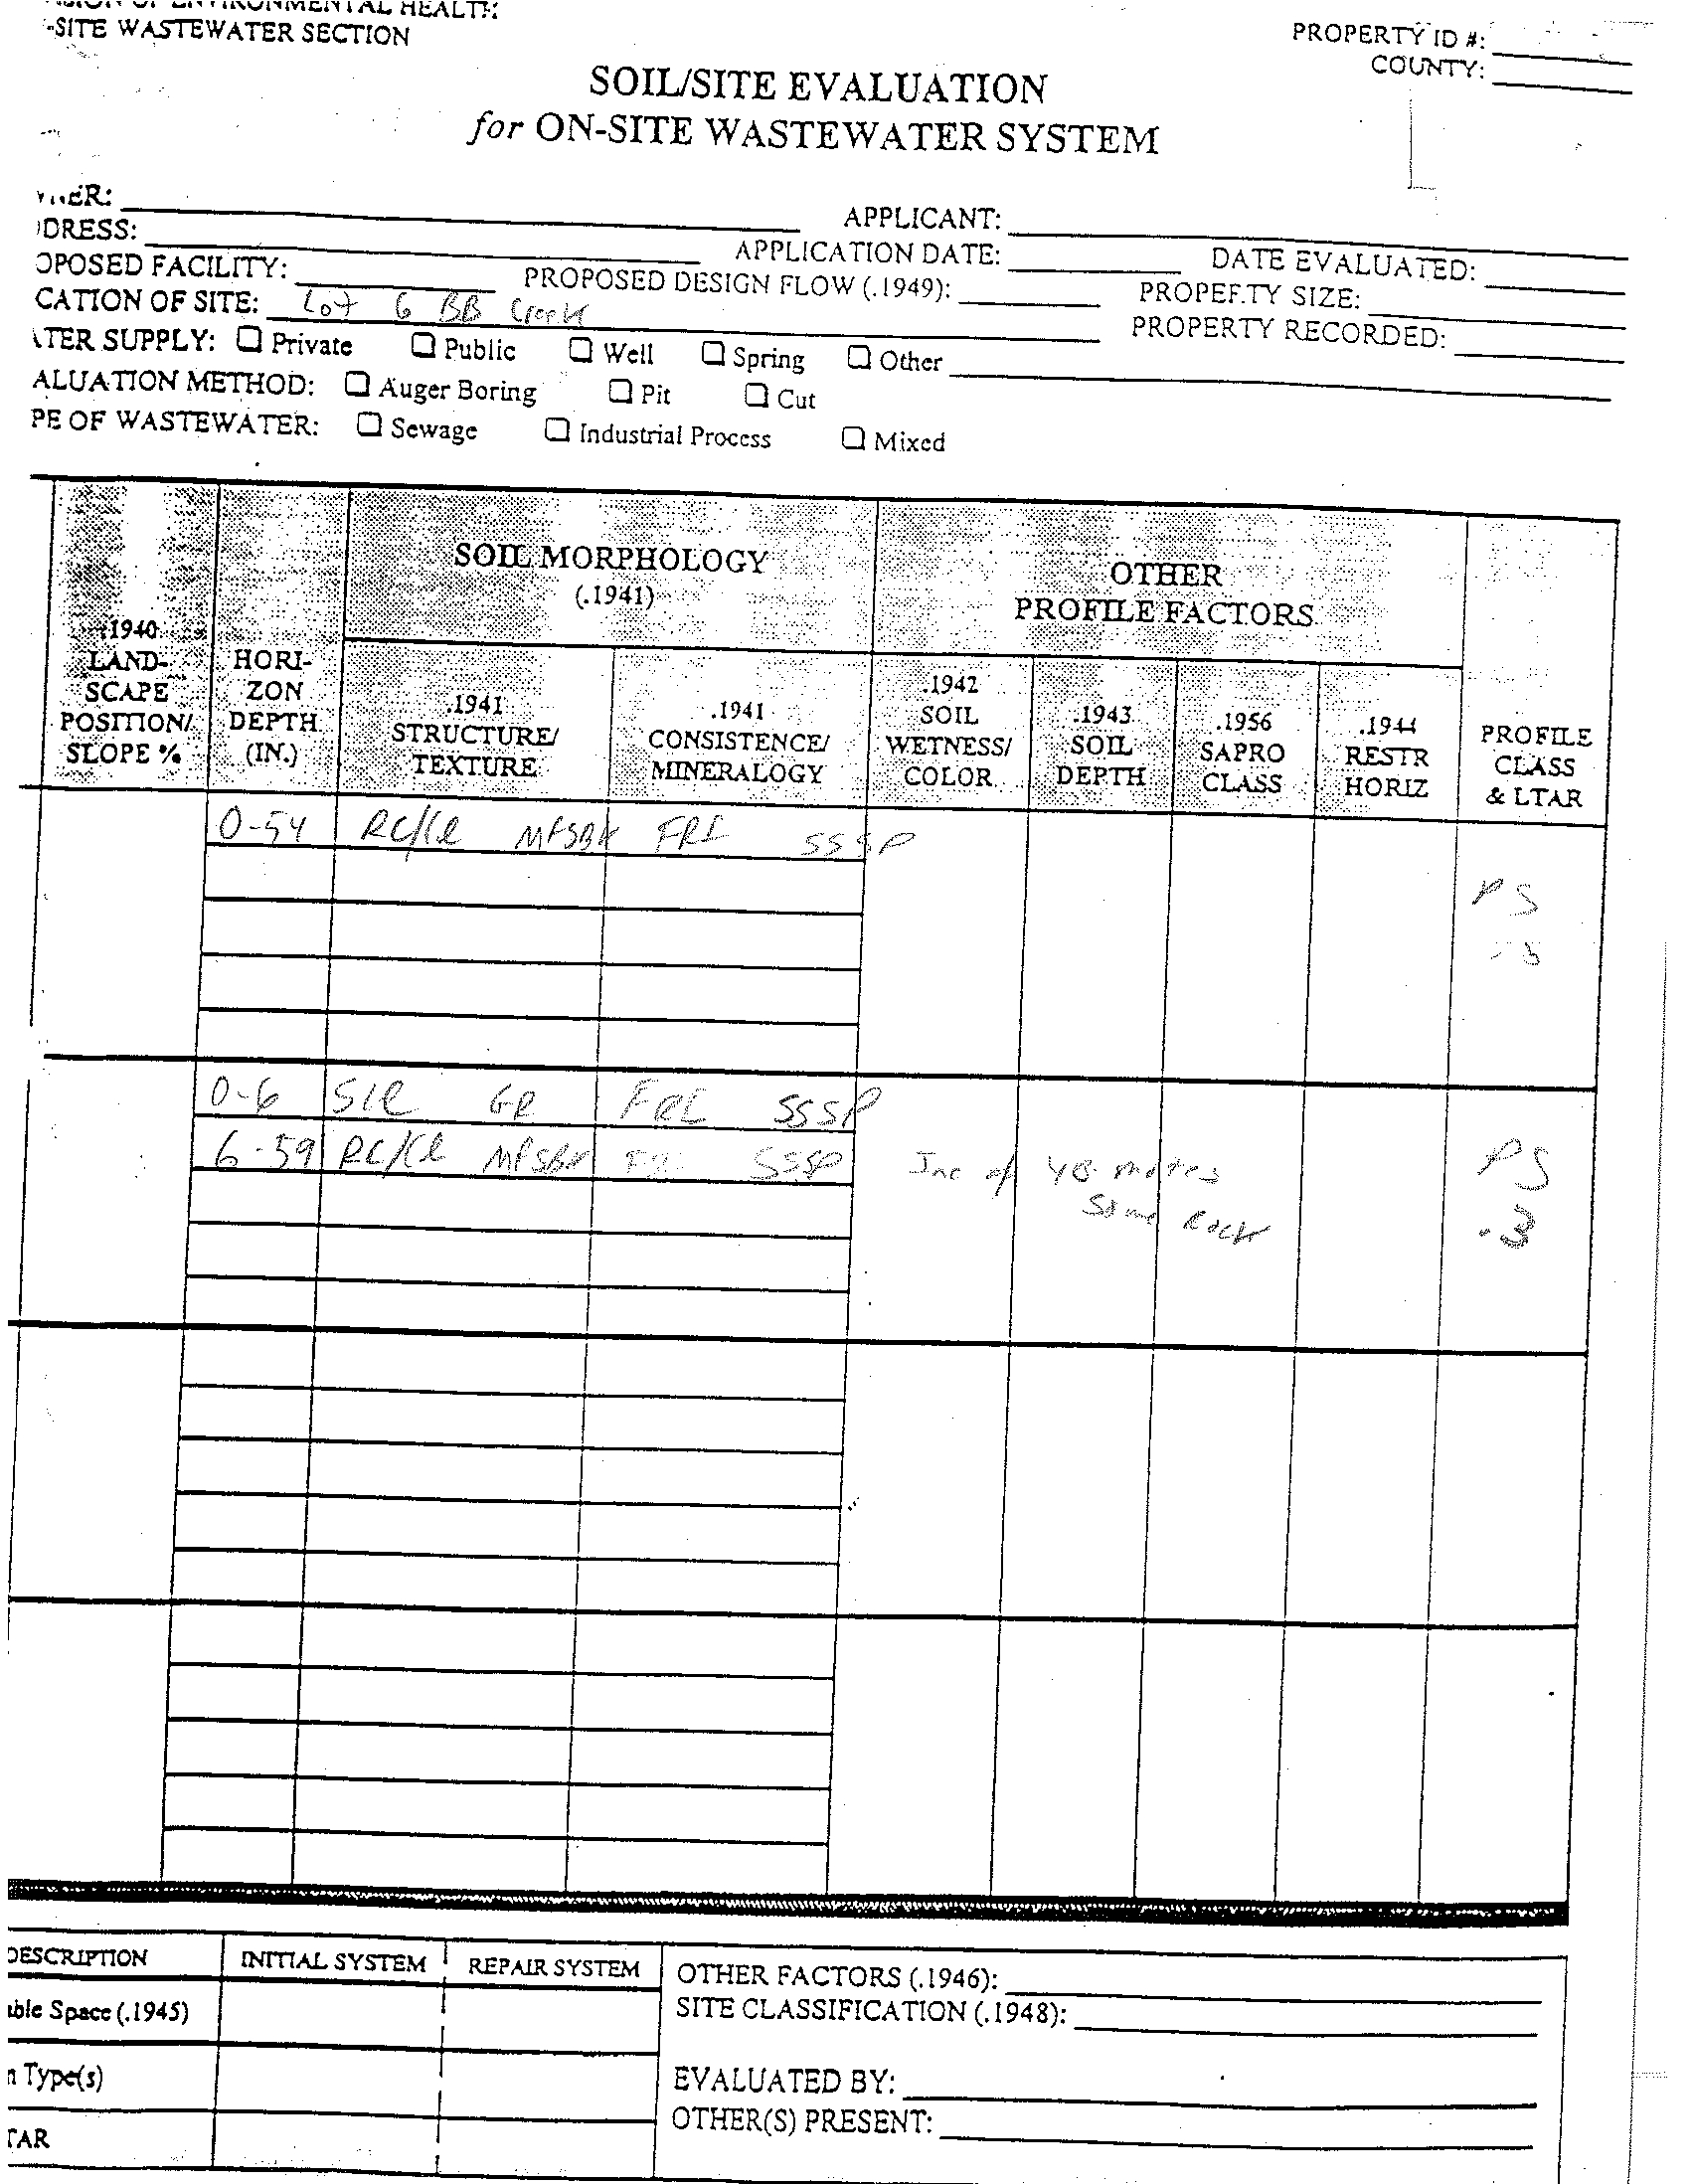 ENVIRONMENTAL HEALTH
-SITE WASTEWATER SECTION
PROPERTY ID #:
COUNTY:
SOIL/SITE EVALUATION
for ON-SITE WASTEWATER SYSTEM
NER:
APPLICANT:
DRESS:
APPLICATION DATE:
DATE EVALUATED:
OPOSED FACILITY:
PROPOSED DESIGN FLOW (.1949):
PROPERTY SIZE:
CATION OF SITE: Lot 6 BB Creek
PROPERTY RECORDED:
TER SUPPLY: ☐ Private ☐ Public ☐ Well ☐ Spring ☐ Other
ALUATION METHOD: ☐ Auger Boring ☐ Pit ☐ Cut
PE OF WASTEWATER: ☐ Sewage ☐ Industrial Process ☐ Mixed
.1940
LAND-
SCAPE
POSITION/
SLOPE %
HORI-
ZON
DEPTH
(IN.)
SOIL MORPHOLOGY
(.1941)
.1941
STRUCTURE/
TEXTURE
.1941
CONSISTENCE/
MINERALOGY
OTHER
PROFILE FACTORS
.1942
SOIL
WETNESS/
COLOR
.1943
SOIL
DEPTH
.1956
SAPRO
CLASS
.1944
RESTR
HORIZ
PROFILE
CLASS
& LTAR
0-54 MFSBK FRI SSSP
PS
0-6 GR FRI SSSP
6-59 MFSBK SSSP
48
Some Rock
PS
.3
DESCRIPTION
INITIAL SYSTEM
REPAIR SYSTEM
able Space (.1945)
n Type(s)
TAR
OTHER FACTORS (.1946):
SITE CLASSIFICATION (.1948):
EVALUATED BY:
OTHER(S) PRESENT: